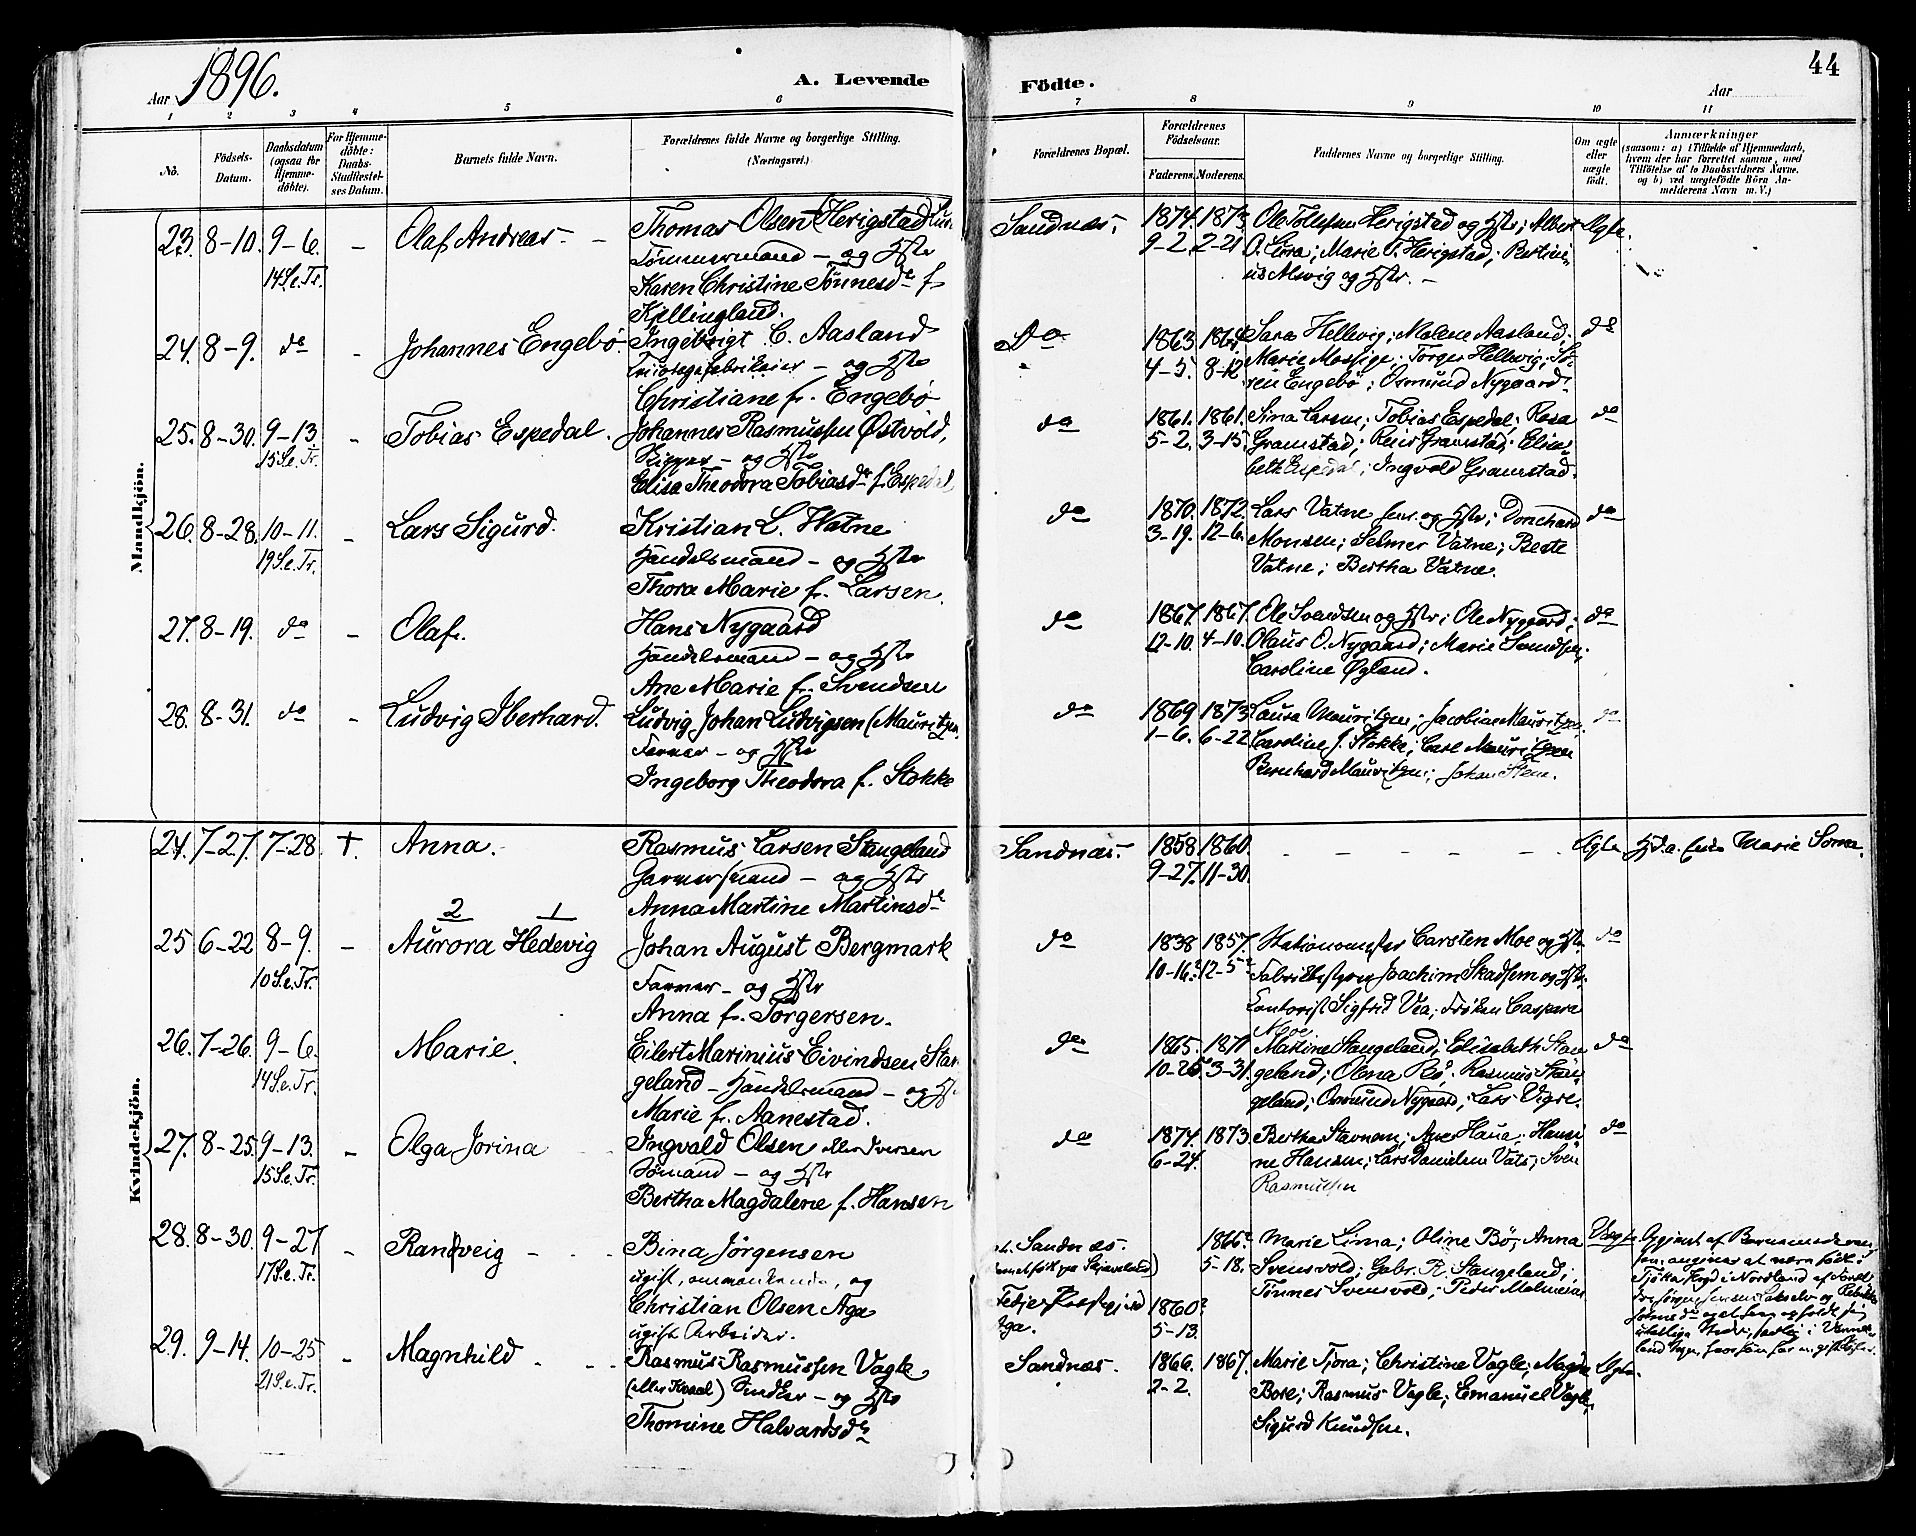 44
Aar 1896.
A. Levende Födte.
Aar
1 2 3 4 5 6 7 8 9 10 11
No.
Födsels-Datum.
Daabsdatum (ogsaa for Hjemme-døbte).
For Hjemme-døbte: Daabs-Stadfæstel-ses Datum.
Barnets fulde Navn.
Forældrenes fulde Navne og borgerlige Stilling.
(Næringsvei.)
Forældrenes Bopæl.
Forældrenes Födselsaar.
Faderens. Moderens.
Faddernes Navne og borgerlige Stilling.
Om ægte eller uægte født.
Anmærkninger
(saasom: a) i Tilfælde af Hjemmedaab,
hvem der har forrettet samme, med
Tilföielse af to Daabsvidners Navne.
og b) ved uægtefödte Börn An-
melderens Navn m.V.)
Mandkjön.
23. 8-10. 9-6. - Olaf Andreas. - Thomas Olsen (Herigstad Sandnæs. 1874. 1873 Ole Tollefsen Herigstad og Hstr; Albert Ægte.
14 S.e.Tr. Tømmermand - og Hstr 9-2. 2-21 O. Lima; Marie T. Herigstad;
Karen Christine Tönnesd. f. og Hstr. -
Kjellingland.
24. 8-9. do - Johannes Engebø. Ingebrigt C. Aasland Do 1863 1864 Sara Hellevig; Malene Aasland; do
- og Hstr 4-5. 8-12 Marie Mossige; Torger Hellevig; Sö-
Christiane f. Engebø ren Engebö; Osmund Nygaard.
25. 8-30. 9-13. - Tobias Espedal. Johannes Rasmussen Østvold, do 1861. 1861. Sina Larsen; Tobias Espedal; Rasa do
15 S.e.Tr. Skipper - og Hstr 5-2. 3-15. Gramstad; Reier Gramstad; Elisa-
Elisa Theodora Tobiasd. f. Espedal beth Espedal; Ingvald Gramstad.
26. 8-28. 10-11. - Lars Sigurd. Kristian L. Hatne do 1870. 1872. Lars Vatne sen. og Hstr; do
19 S.e.Tr. Handelsmand - og Hstr 3-19. 12-6. Monsen; Selmer Vatne; Berte
Thora Marie f. Larsen. Vatne; Bertha Vatne.
27. 8-19. do - Olaf. Hans Nygaard do 1867. 1867. Ole Svendsen og Hstr; Ole Nygaard; do
Handelsmand - og Hstr 12-10. 4-10. Olaus O. Nygaard; Marie Svendsen;
Ane Marie f. Svendsen Caroline Øgland.
28. 8-31. do - Ludvig Iberhard. Ludvig Johan Ludvigsen (Mauritzen do 1869 1873 Laura Mauritzen; Jacobine Mauritzen. do
Farver - og Hstr 1-6. 6-22 Caroline J. Stokke; Carl Mauritzen
Ingeborg Theodora f. Stokke Bernhard Mauritzen; Johan Stene.
Kvindekjön.
24. 7-27. 7-28 +. Anna. Rasmus Larsen Stangeland Sandnæs. 1858 1860. - - - - - Ægte Hjd. a. Marie
Garver - og Hstr 9-27. 11-30.
Anna Martine Martinsd.
2 1
25 6-22 8-9. - Aurora Hedevig Johan August Bergmark do 1838 1857. Stationsmester Carsten Moe og Hstr. do
10 S.e.Tr. Farver - og Hstr 10-16. 12-5 Fabrikbestyrer Joachim Skadsem og Hstr.
Anna f. Torgersen. Kontorist Sigfrid Vea; Frøken Caspara
Moe.
26. 7-26. 9-6. - Marie. Eilert Marinius Eivindsen Stan- do 1865. 1871 Martine Stangeland; Elisabeth Stan- do
14 S.e.Tr. geland - Handelsmand - og H. 10-25. 3-31. geland; Olena Rö; Rasmus Stan-
Marie f. Aanestad. geland; Osmund Nygaard; Lars Vigre.
27. 8-25. 9-13. - Olga Jorina Ingvald Olsen eller Iversen do 1874. 1873. Bertha Stavnem; Ane Haua; Hansi- do
15 S.e.Tr. Sømand - og Hstr 6-24. ne Hansen; Lars Danielsen Vats; Sven
Bertha Magdalene f. Hansen Rasmussen
28. 8-30. 9-27 - Randveig - Bina Jörgensen Sandnæs. 1866? Marie Lima; Oline Bö; Anna Uægte Opgivet af Barnemoderen,
17 S.e.Tr. ugift, og 5-18. Svensvold; Gabr. R. Stangeland; som angives at være født i
Christian Olsen Aga 1860? Tönnes Svensvold; Peter Malmeim
ugift Arbeider. Aga. 5-13.
29. 9-14. 10-25 - Magnhild - Rasmus Rasmussen Vagle Sandnæs. 1866. 1867. Marie Tjora; Christine Vagle; Magda Ægte.
21 S.e.Tr. - og Hstr 2-2. Bore; Rasmus Vagle; Emanuel Vagle,
Thomine Halvardsd. Sigurd Knudsen.